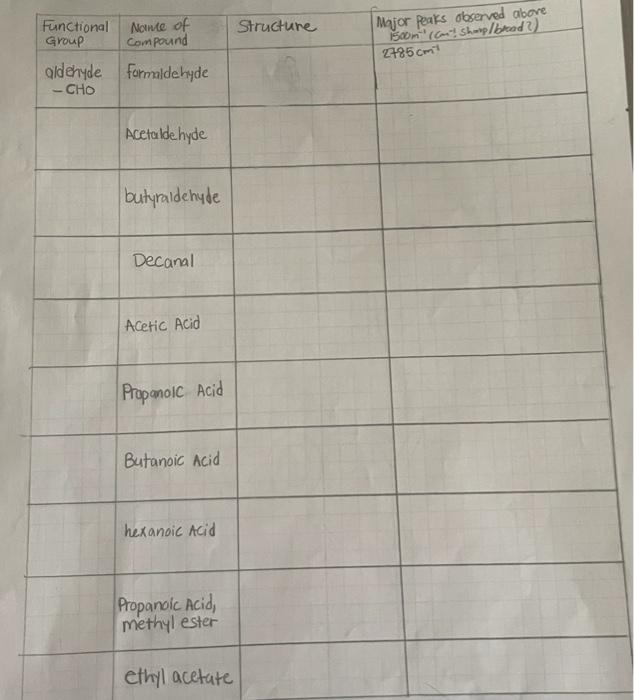 Functional Group
Name of Compound
Structure
Major Peaks observed above
1500m⁻¹ (cm⁻¹, sharp/broad?)
aldehyde
- CHO
formaldehyde
2785 cm⁻¹
Acetaldehyde
butyraldehyde
Decanal
Acetic Acid
Propanoic Acid
Butanoic Acid
hexanoic Acid
Propanoic Acid,
methyl ester
ethyl acetate